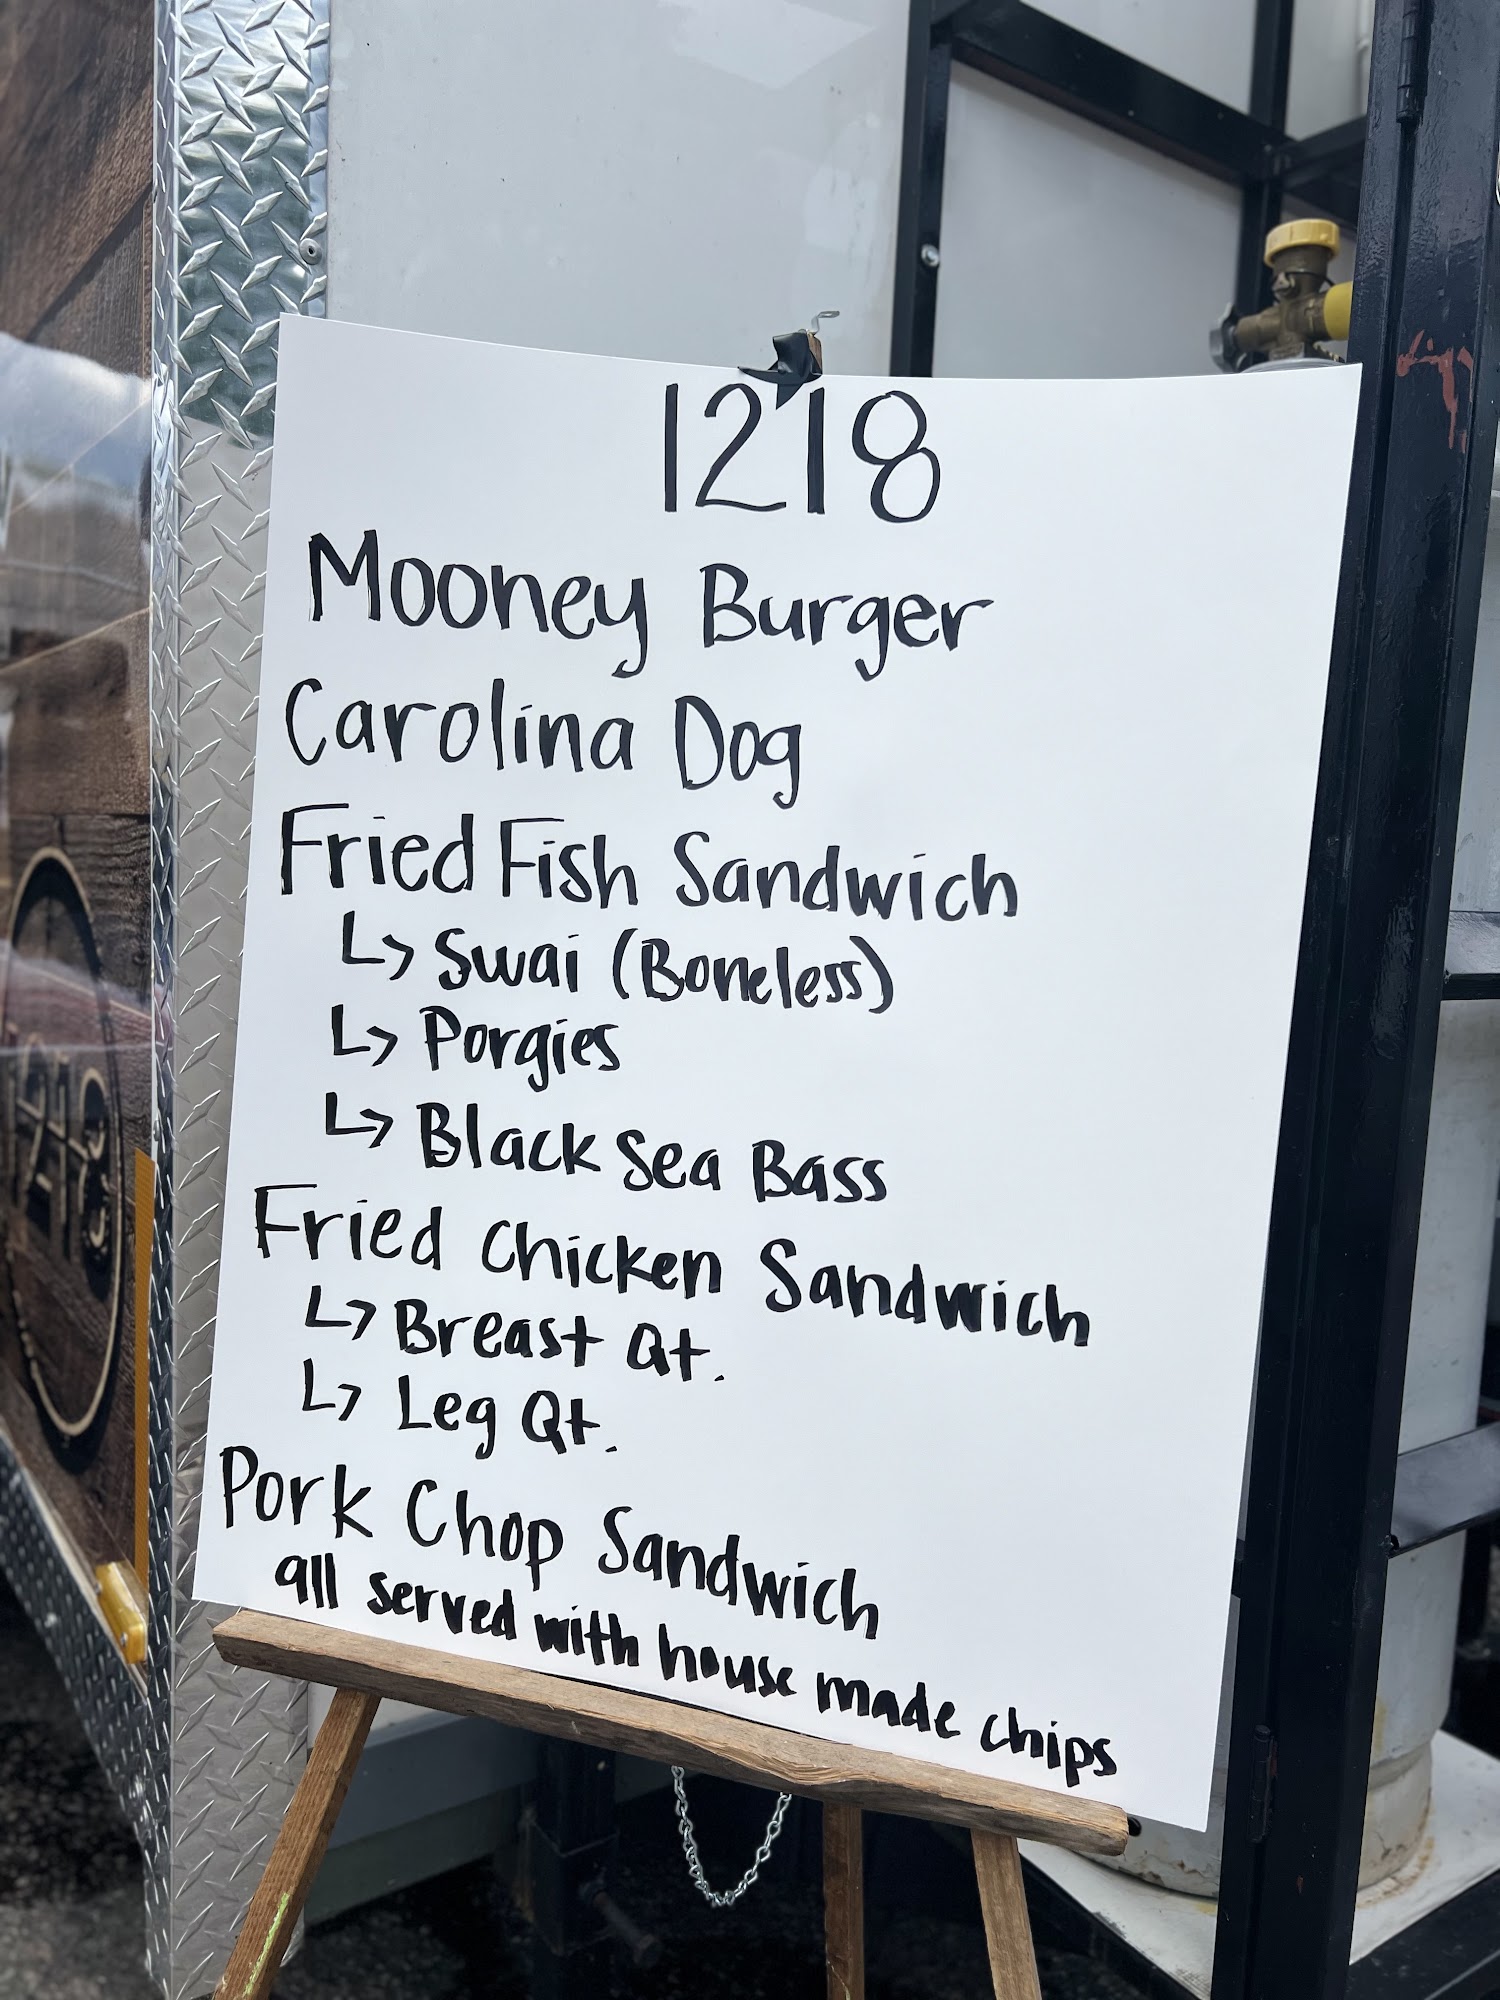 1218
Mooney Burger
Carolina Dog
Fried Fish Sandwich
↳ Swai (Boneless)
↳ Porgies
↳ Black Sea Bass
Fried Chicken Sandwich
↳ Breast Qt.
↳ Leg Qt.
Pork Chop Sandwich
all served with house made chips
1218